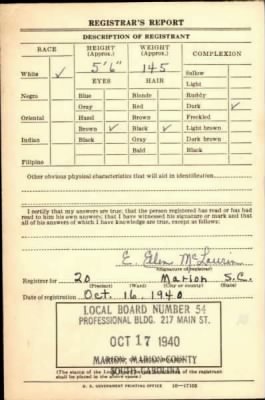 REGISTRAR'S REPORT
DESCRIPTION OF REGISTRANT
RACE
HEIGHT
(Approx.)
WEIGHT
(Approx.)
COMPLEXION
White ✓
5'6"
145
Sallow
EYES
HAIR
Light
Negro
Blue
Blonde
Ruddy
Gray
Red
Dark ✓
Oriental
Hazel
Brown
Freckled
Brown ✓
Black ✓
Light brown
Indian
Black
Gray
Dark brown
Bald
Black
Filipino
Other obvious physical characteristics that will aid in identification
I certify that my answers are true; that the person registered has read or has had
read to him his own answers; that I have witnessed his signature or mark and that
all of his answers of which I have knowledge are true, except as follows:
E. Glen McLaurin
(Signature of registrar)
Registrar for 20 Marion S.C.
(Precinct) (Ward) (City or county) (State)
Date of registration Oct. 16, 1940
LOCAL BOARD NUMBER 54
PROFESSIONAL BLDG. 217 MAIN ST.
OCT 17 1940
MARION, MARION COUNTY
SOUTH CAROLINA
(The stamp of the Local
of the registrant
shall be placed in the above space.)
U. S. GOVERNMENT PRINTING OFFICE 16—17105